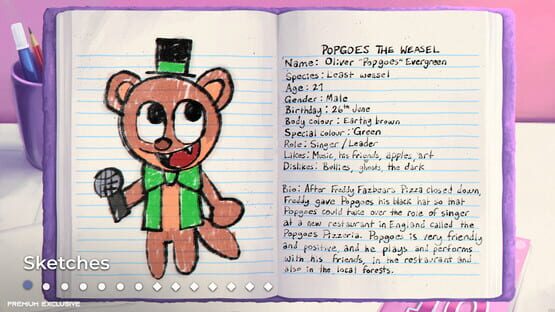 POPGOES THE WEASEL
Name: Oliver "Popgoes" Evergreen
Species: Least weasel
Age: 21
Gender: Male
Birthday: 26th June
Body colour: Earthy brown
Special colour: Green
Role: Singer / Leader
Likes: Music, his friends, apples, art
Dislikes: Bullies, ghosts, the dark
Bio: After Freddy Fazbear's Pizza closed down,
Freddy gave Popgoes his black hat so that
Popgoes could take over the role of singer
at a new restaurant in England called the
Popgoes Pizzeria. Popgoes is very friendly
and positive, and he plays and performs
with his friends, in the restaurant and
also in the local forests.
Sketches
PREMIUM EXCLUSIVE